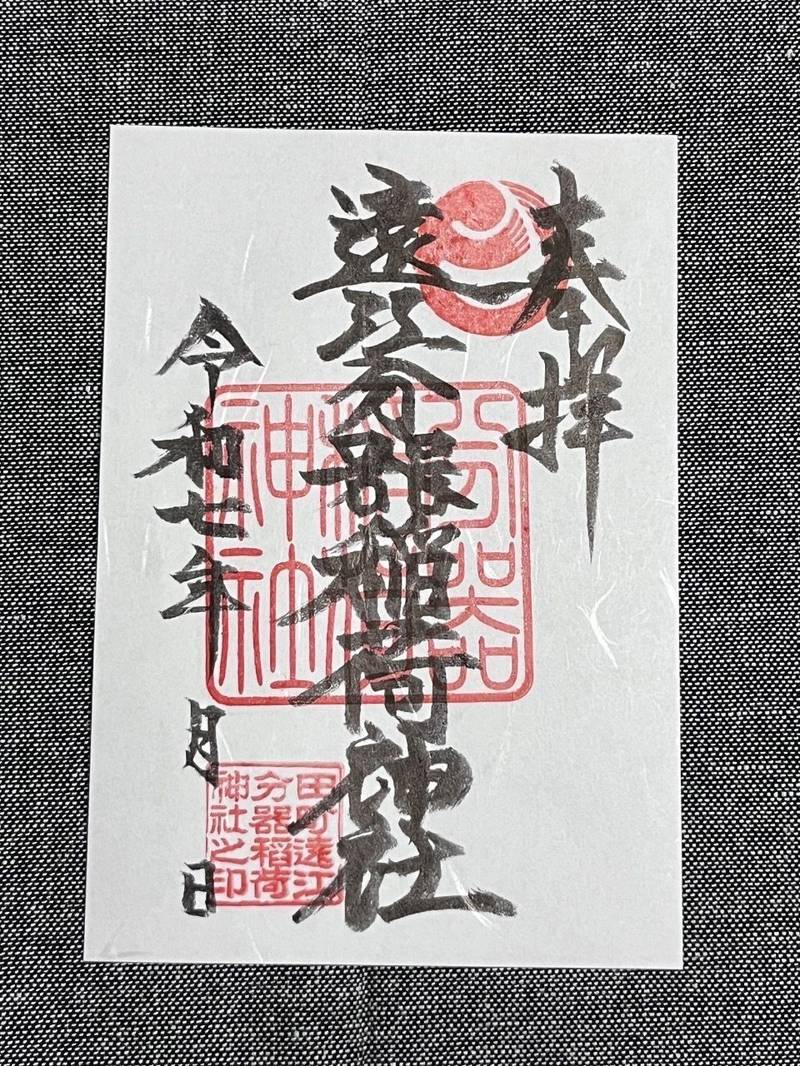 奉拝
遠江分器稲荷神社
分器
稲荷
神社
令和七年　月　日
田町遠江
分器稲荷
神社之印